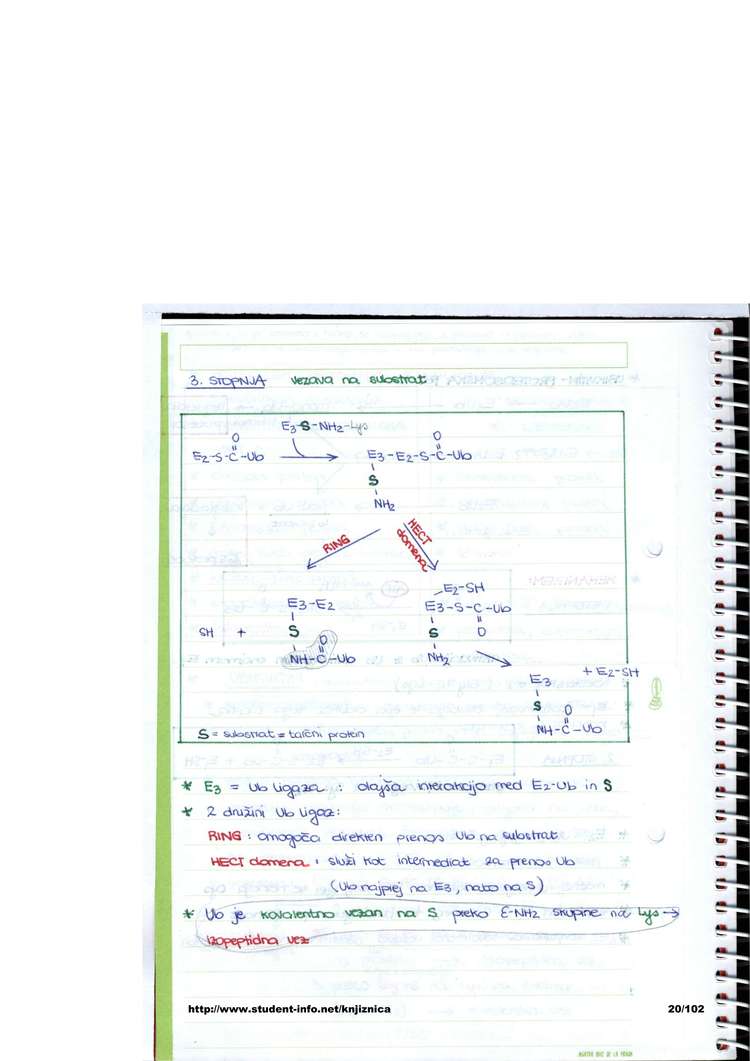 3. STOPNJA vezava na substrat
E3-S-NH2-Lys
O O
E2-S-C-Ub E3-E2-S-C-Ub
S
NH2
RING HECT domena
E2-SH
E3-E2 E3-S-C-Ub
SH + S O S O
NH-C-Ub NH2
+ E2-SH
E3
S O
NH-C-Ub
S = substrat = tarčni protein
* E3 = Ub ligaza : olajša interakcijo med E2-Ub in S
* 2 družini Ub ligaz:
RING : omogoča direkten prenos Ub na substrat
HECT domena : služi kot intermediat za prenos Ub
(Ub najprej na E3, nato na S)
* Ub je kovalentno vezan na S preko ε-NH2 skupine na Lys →
izopeptidna vez
http://www.student-info.net/knjiznica 20/102